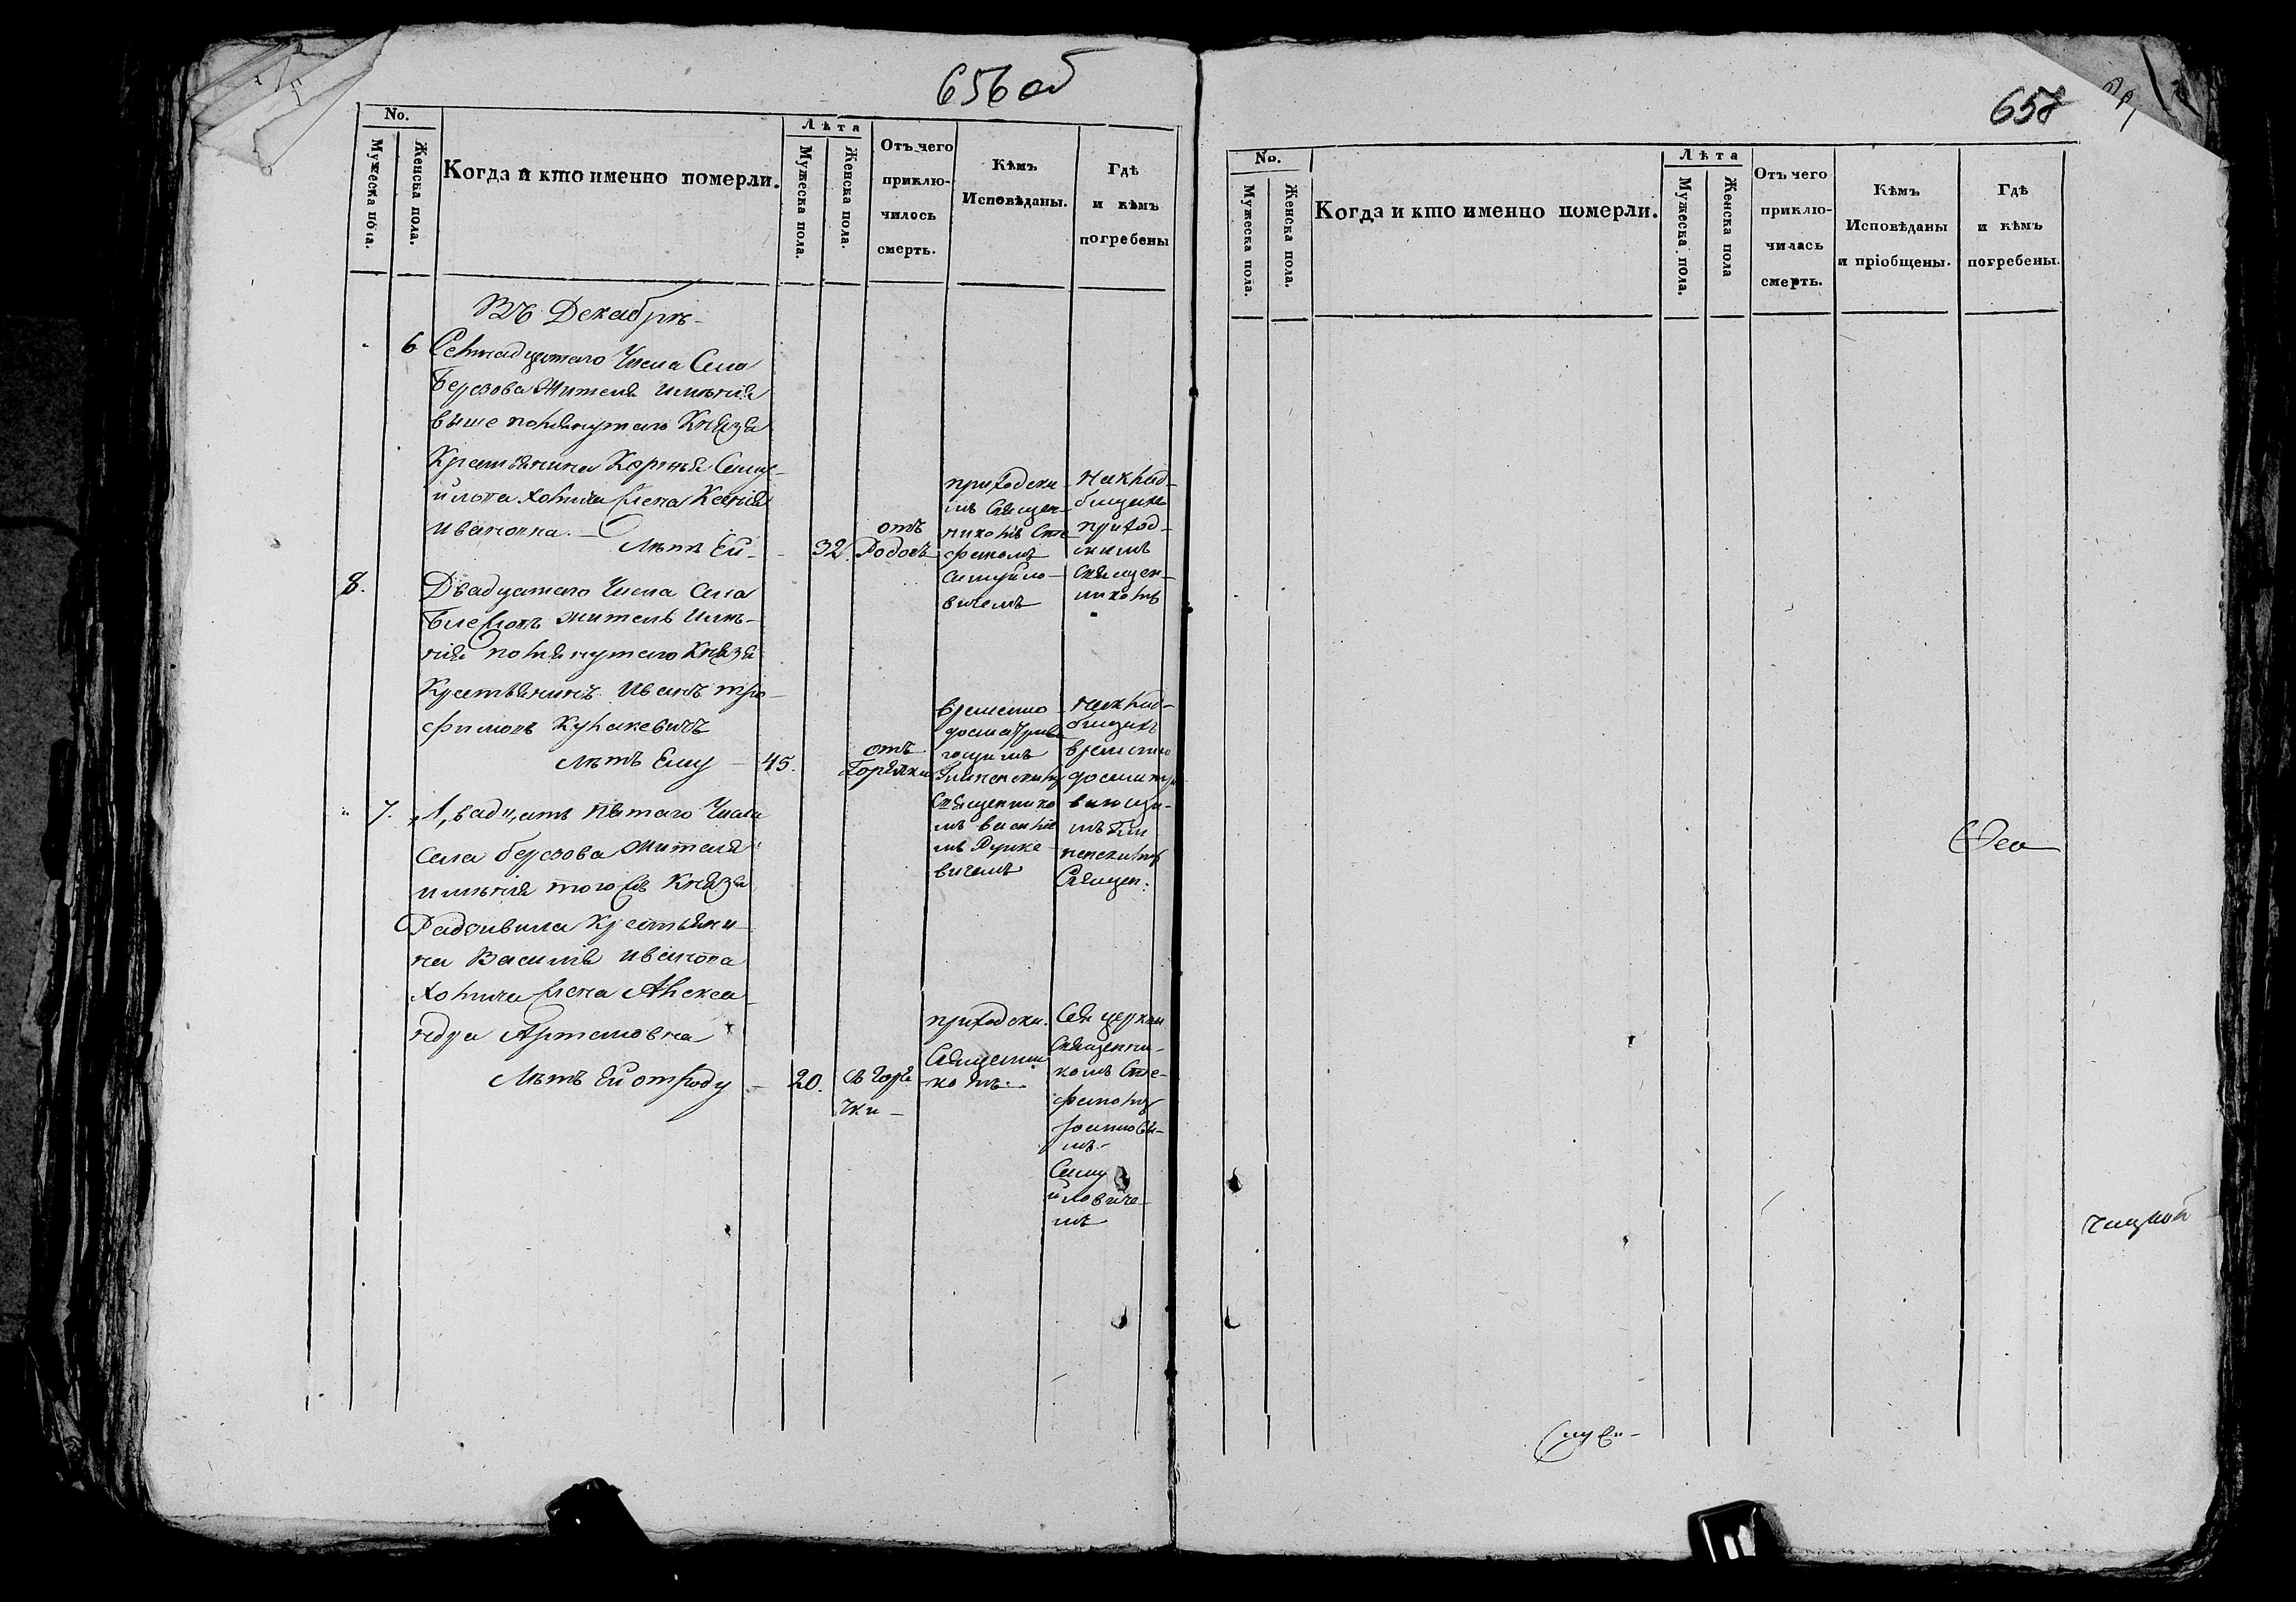 656 об
No.
Мужеска пола.
Женска пола.
Когда и кто именно померли.
Лѣта
Мужеска пола.
Женска пола.
Отъ чего
приклю-
чилось
смерть.
Кѣмъ
Исповѣданы.
Гдѣ
и кѣмъ
погребены
Въ Декабрѣ
6 Семнадцатаго Числа Села
Березова Жителя имѣнія
выше помянутаго Князя
Крестьянина Корнѣя Самуй-
йлова Хомича жена Ксенія
Ивановна. —
Лѣтъ Ей — 32.
отъ
Родовъ
приходски-
мъ Священ-
никомъ Сте-
фаномъ
Самуйло-
вичемъ
на клад-
бищахъ
приход-
скимъ
Священ-
никомъ
8. Двадцатаго Числа Села
житель Имѣ-
нія помянутаго Князя
Крестьянинъ Иванъ Тро-
фимовъ
Лѣтъ Ему — 45.
отъ
Горячки
временно
гощимъ
Священнико
мъ
вичемъ
на клад-
бищахъ
временно
вающи-
мъ
Священ.
7. Двадцать пятаго Числа
Села березова Жителя
имѣнія того жъ Князя
Радзивила Крестьяни-
на Василія Иванова
Хомича жена Алекса-
ндра Артемовна
Лѣтъ Ей отроду — 20.
съ Горя
чки —
приходски.
Священни
комъ.
Священни-
комъ Сте-
фаномъ
Самуй
йловиче-
мъ
658
No.
Мужеска пола.
Женска пола.
Когда и кто именно померли.
Лѣта
Мужеска пола.
Женска пола
Отъ чего
приклю-
чилась
смерть.
Кѣмъ
Исповѣданы
и пріобщены.
Гдѣ
и кѣмъ
погребены.